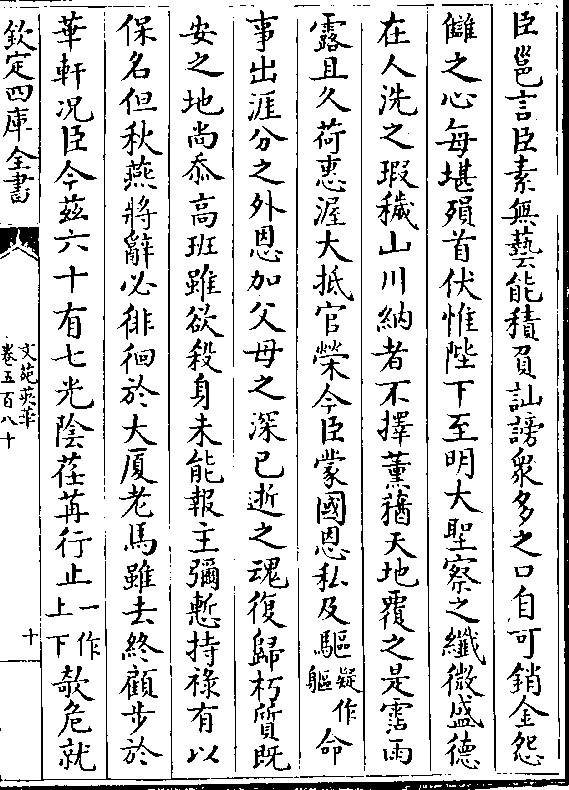 臣邕言臣素無藝能積負訕謗衆多之口自可銷金怨
讎之心每堪殞首伏惟陛下至明大聖察之纎微盛德
在人洗之瑕穢山川納者不擇薰蕕天地覆之是霑雨
露且久荷惠渥大抵官榮今臣蒙國恩私及驅疑作軀命
事出涯分之外恩加父母之深已逝之魂復歸朽質既
安之地尚忝高班雖欲殺身未能報主彌慙持祿有以
保名但秋燕將辭必徘徊於大厦老馬雖去終顧步於
華軒况臣今兹六十有七光陰荏苒行止一作上下欹危就
欽定四庫全書
文苑英華
卷五百八十
十